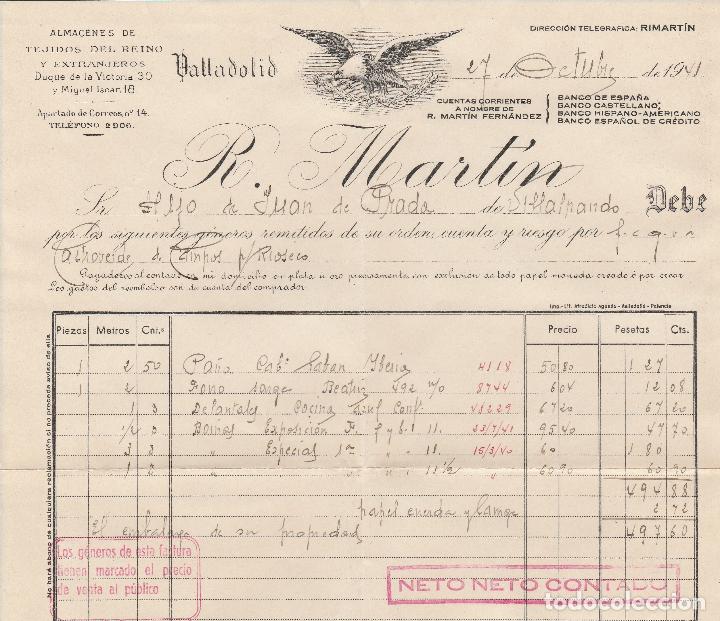 ALMACENES DE
TEJIDOS DEL REINO
Y EXTRANJEROS
Duque de la Victoria 30
y Miguel Iscar, 18
Apartado de Correos, nº 14.
TELÉFONO, 2906.
Valladolid
DIRECCIÓN TELEGRAFICA: RIMARTÍN
27 de Octubre de 1941
CUENTAS CORRIENTES
A NOMBRE DE
R. MARTÍN FERNÁNDEZ
BANCO DE ESPAÑA
BANCO CASTELLANO;
BANCO HISPANO-AMERICANO
BANCO ESPAÑOL DE CRÉDITO
R. Martín
Sr. Hijo de Juan de Prada de Villalpando Debe
por los siguientes géneros remitidos de su orden, cuenta y riesgo por
Castroverde de Campos p/ Rioseco
Pagaderos al contado en mi domicilio en plata u oro precisamente con exclusion de todo papel moneda creado ó por crear
Los gastos del reembolso son de cuenta del comprador
Imp.-Lit. Afrodisio Aguado.-Valladolid - Palencia
No hará abono de cualquiera reclamación si no precede aviso de ella
Piezas Metros Cm.s Precio Pesetas Cts.
1 2 50 Paño Cab. Gaban Iberia 4118 50 80 1 27
1 2 Forro sarga Beatriz 8744 604 12 08
1 3 Delantales Cocina azul Conf. 43229 67 20 67 20
1/2 3 Boinas Exposición F. 11. 23/7/41 95 40 47 70
3 3 " Especial 1ª " " 11. 15/3/40 60 1 80
1 3 " " " 11 1/2 60 90 60 90
494 88
papel cuerda y 2 72
El embalage de su propiedad 497 60
Los géneros de esta factura
tienen marcado el precio
de venta al público
NETO NETO CONTADO
todocoleccion